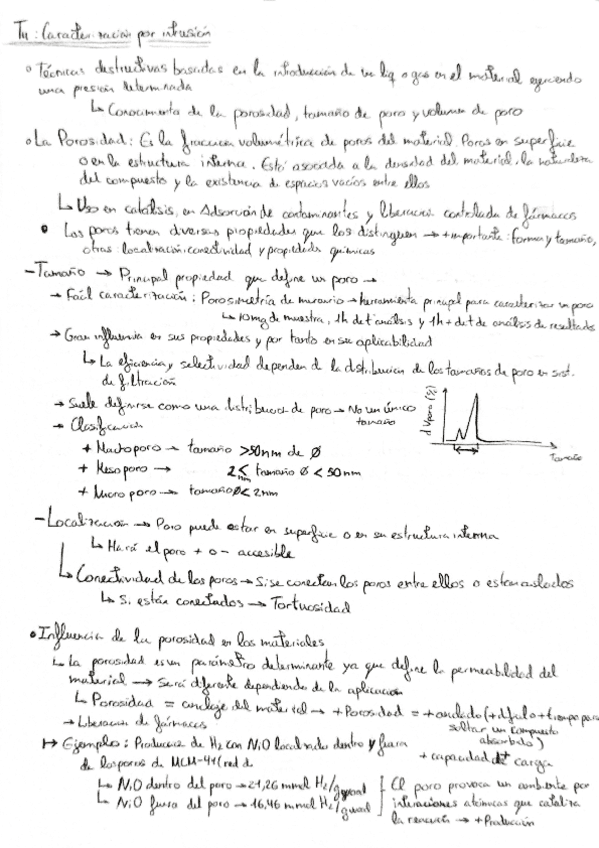 T4: Caracterización por intrusión
o Técnicas destructivas basadas en la introducción de un liq o gas en el material ejerciendo
una presión determinada
↳ Conocimiento de la porosidad, tamaño de poro y volumen de poro
o La Porosidad: Es la fracción volumétrica de poros del material. Poros en superficie
o en la estructura interna. Está asociada a la densidad del material, la naturaleza
del compuesto y la existencia de espacios vacíos entre ellos
↳ Uso en catálisis, en Adsorción de contaminantes y liberación controlada de fármacos
• Los poros tienen diversas propiedades que los distinguen → + importante: forma y tamaño,
otras: localización, conectividad y propiedades químicas
- Tamaño → Principal propiedad que define un poro →
→ Fácil caracterización: Porosimetría de mercurio → herramienta principal para caracterizar un poro
↳ 10 mg de muestra, 1h de t análisis y 1h + de t de análisis de resultados
→ Gran influencia en sus propiedades y por tanto en su aplicabilidad
↳ La eficiencia y selectividad dependen de la distribución de los tamaños de poro en sist.
de filtración
→ Suele definirse como una distribución de poro → No un único
tamaño
→ Clasificación
+ Macroporo → tamaño >50nm de Ø
+ Mesoporo → 2nm ≤ tamaño Ø < 50nm
+ Microporo → tamaño Ø < 2nm
d Vporo (%)
Tamaño
- Localización → Poro puede estar en superficie o en su estructura interna
↳ Hará el poro + o - accesible
↳ Conectividad de los poros → Si se conectan los poros entre ellos o están aislados
↳ Si están conectados → Tortuosidad
• Influencia de la porosidad en los materiales
↳ La porosidad es un parámetro determinante ya que define la permeabilidad del
material → Será diferente dependiendo de la aplicación
↳ Porosidad = anclaje del material → + Porosidad = + anclado (+ difícil o + tiempo para
soltar un compuesto
absorbido)
+ capacidad de carga
→ Liberación de fármacos
↦ Ejemplo: Producción de H2 con NiO localizado dentro y fuera
de los poros de MCM-41 (red de
↳ NiO dentro del poro → 21,26 mmol H2/g
↳ NiO fuera del poro → 16,46 mmol H2/g
El poro provoca un ambiente por
interacciones atómicas que cataliza
la reacción → + Producción